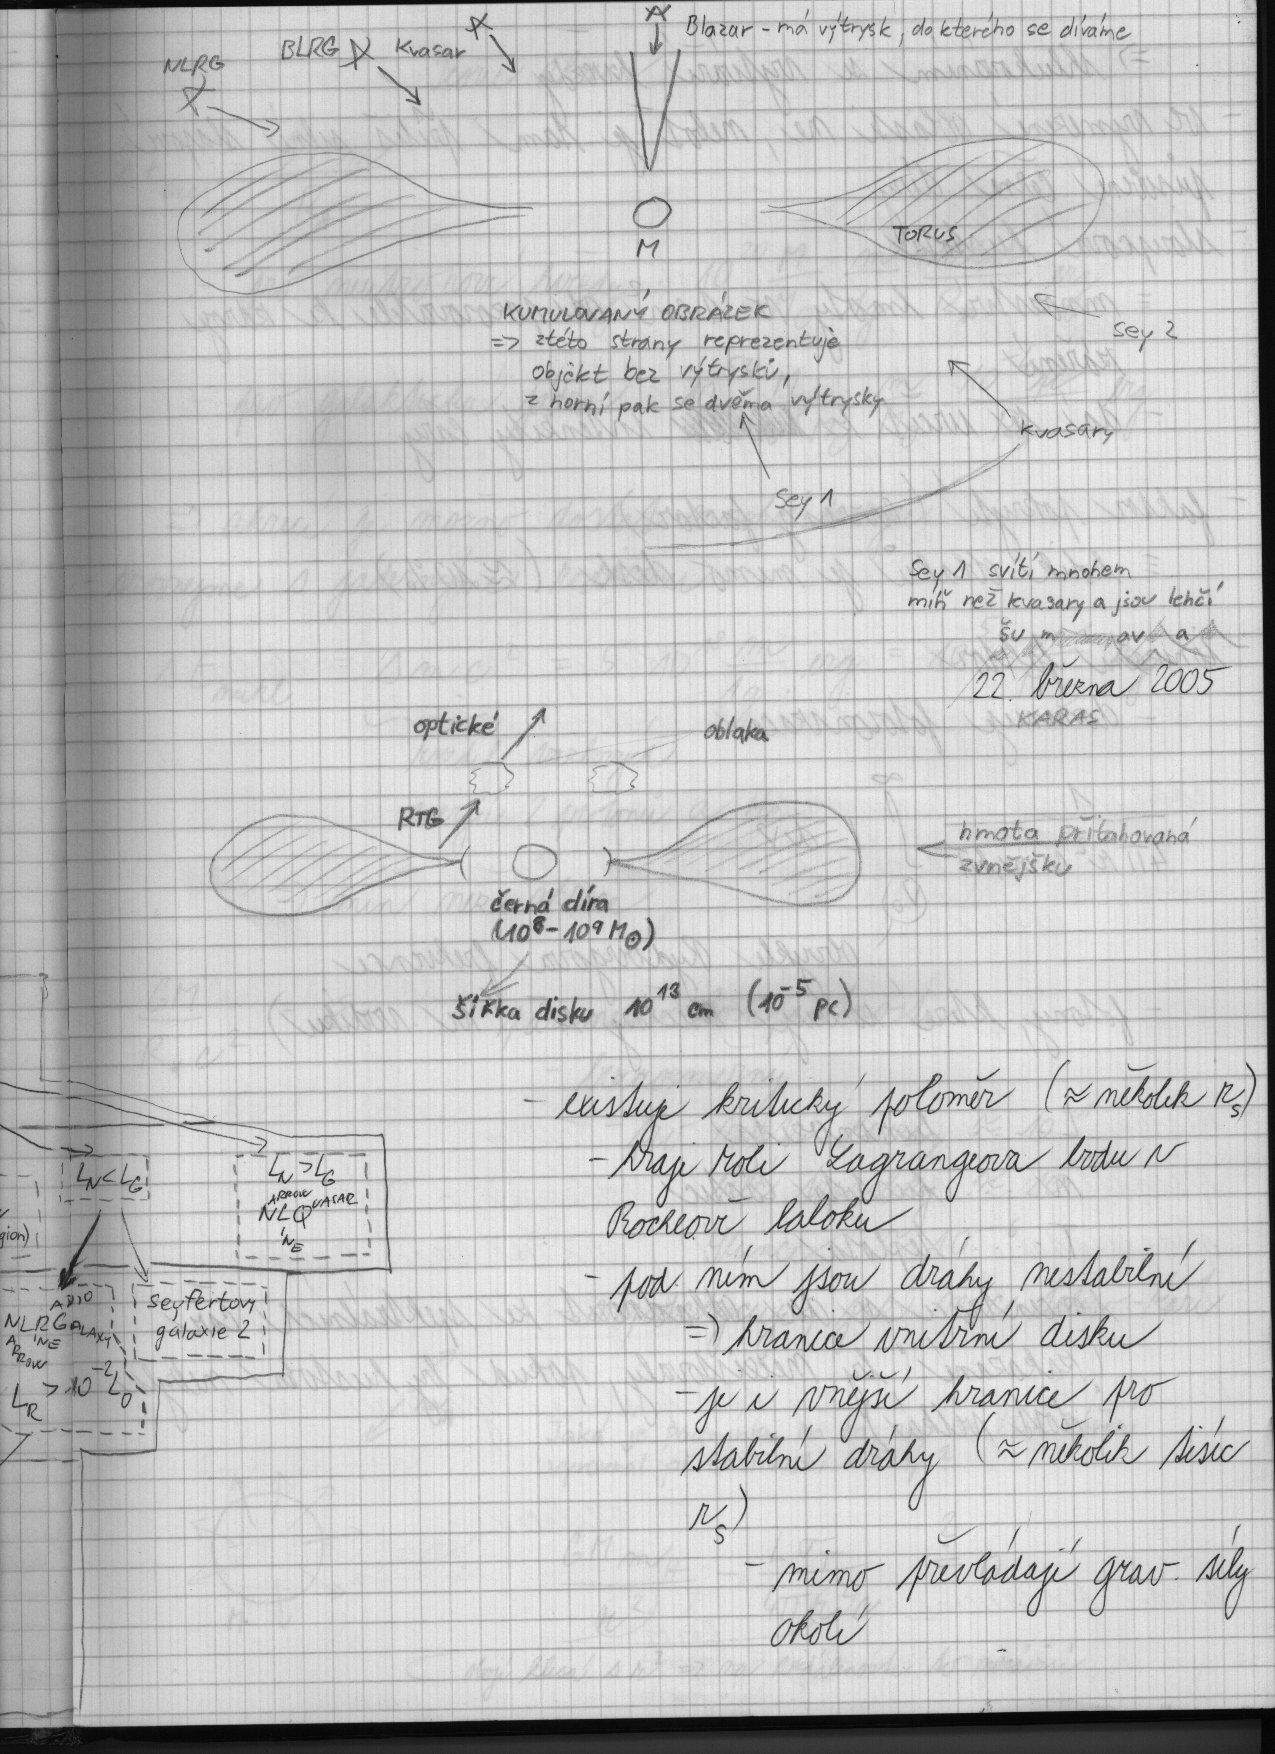 Blazar - má výtrysk, do kterého se díváme
NLRG
BLRG
Kvasar
M
TORUS
KUMULOVANÝ OBRÁZEK
=> z této strany reprezentuje
objekt bez výtrysků,
z horní pak se dvěma výtrysky
Sey 2
kvasary
Sey 1
Sey 1 svítí mnohem
míň než kvasary a jsou lehčí
22. března 2005
KARAS
optické
oblaka
RTG
hmota přitahovaná
zvnějšku
černá díra
(10⁸-10⁹ M⊙)
šířka disku 10¹³ cm (10⁻⁵ pc)
- existuje kritický poloměr (≈ několik r_s)
- hraje roli Lagrangeova bodu v
Rocheově laloku
- pod ním jsou dráhy nestabilní
=> hranice vnitřní disku
- je i vnější hranice pro
stabilní dráhy (≈ několik tisíc
r_s)
- mimo převládají grav. síly
okolí
L_N < L_G
L_N > L_G
ARROW UASAR
NLQ
INE
gion)
ADIO
NLRG ALAXY
INE
ARROW
L_R > 10⁻² L_O
Seyfertovy
galaxie 2